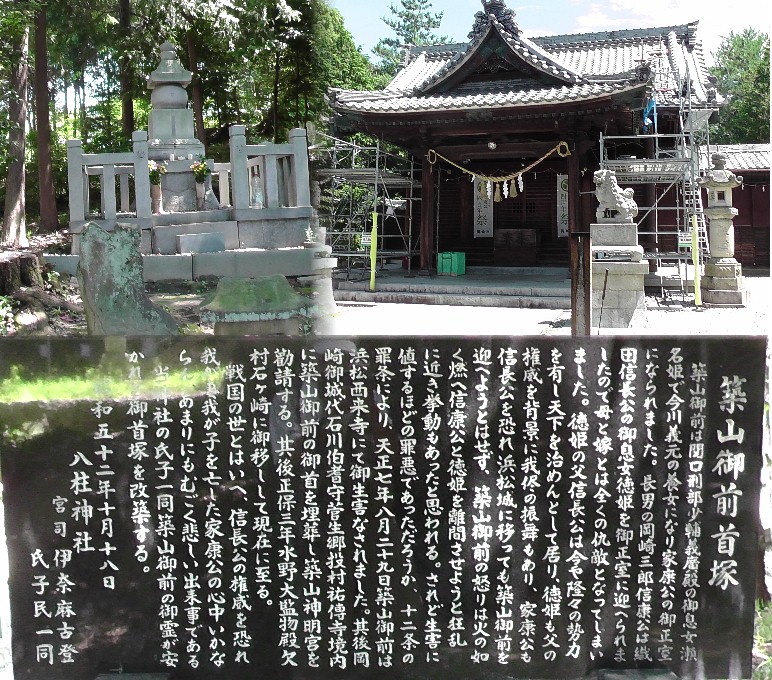 築山御前首塚
築山御前は関口刑部少輔義廣殿の御息女瀬
名姫で今川義元の養女になり家康公の御正室
になられました。長男の岡崎三郎信康公は織
田信長公の御息女徳姫を御正室に迎へられま
したので母と嫁とは全くの仇敵となってしまい
ました。徳姫の父信長公は今や隆々の勢力
を有し天下を治めんとして居り、徳姫も父の
権威を背景に我侭の振舞もあり、家康公も
信長公を恐れ浜松城に移っても築山御前を
迎へようとはせず、築山御前の怒りは火の如
く燃へ信康公と徳姫を離間させようと狂乱
に近き挙動もあったと思われる。されど生害に
値するほどの罪悪であっただろうか、十二条の
罪条により、天正七年八月二十九日築山御前は
浜松西来寺にて御生害なされました。其後岡
崎御城代石川伯者守菅生郷投村祐傳寺境内
に築山御前の御首を埋葬し築山神明宮を
勧請する。其後正保三年水野大監物殿欠
村石ヶ崎に御移しして現在に至る。
戦国の世とはいへ、信長公の権威を恐れ
我が妻我が子を亡した家康公の心中いかな
らん、あまりにもむごく悲しい出来事である
当神社の氏子一同築山御前の御霊が安
かれと御首塚を改築する。
昭和五十二年十月十八日
八柱神社
宮司 伊奈麻古登
氏子民一同
祭